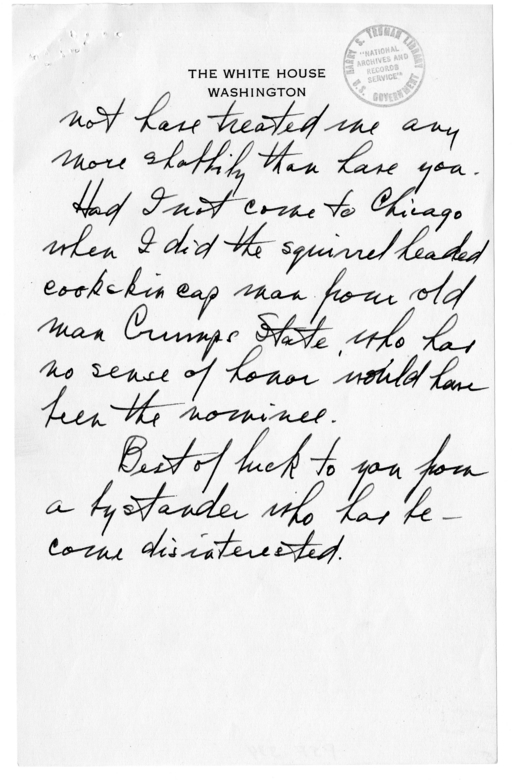 HARRY S. TRUMAN LIBRARY
"NATIONAL
ARCHIVES AND
RECORDS
SERVICE"
U.S. GOVERNMENT
THE WHITE HOUSE
WASHINGTON
not have treated me any
more shabbily than have you.
Had I not come to Chicago
when I did the squirrel headed
coonskin cap man from old
man Crumps State, who has
no sense of honor would have
been the nominee.
Best of luck to you from
a bystander who has be-
come disinterested.